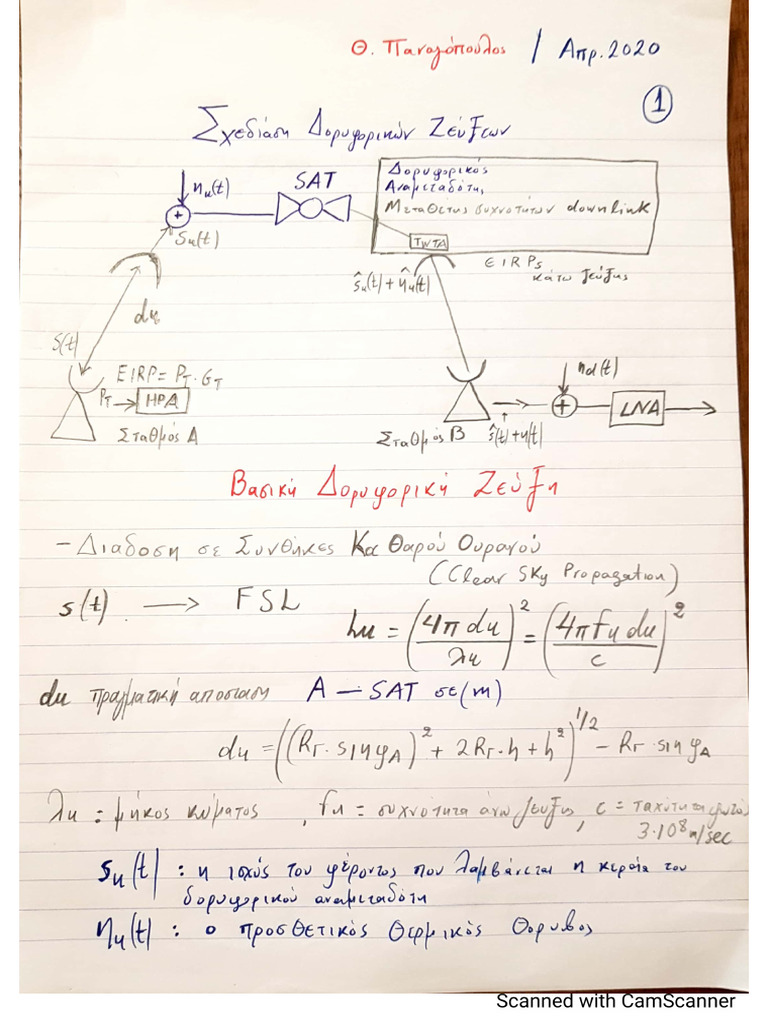 Θ. Παναγόπουλος / Απρ. 2020
1
Σχεδίαση Δορυφορικών Ζεύξεων
SAT
nu(t)
+
su(t)
Δορυφορικός
Αναμεταδότης
Μεταθέτης συχνοτήτων downlink
TWTA
EIRPs
κάτω ζεύξης
ŝu(t) + n̂u(t)
du
s(t)
EIRP = PT · GT
PT → HPA
Σταθμός A
nd(t)
+
LNA
Σταθμός B
ŝ(t) + η(t)
Βασική Δορυφορική Ζεύξη
- Διάδοση σε Συνθήκες Καθαρού Ουρανού
(Clear Sky Propagation)
s(t) → FSL
Lu = (4π du / λu)² = (4π fu du / c)²
du πραγματική απόσταση A — SAT σε (m)
du = ((RΓ · sinφA)² + 2RΓ · h + h²)^1/2 − RΓ · sinφA
λu : μήκος κύματος , fu = συχνότητα άνω ζεύξης, c = ταχύτητα φωτός
3·10⁸ m/sec
su(t) : η ισχύς του φέροντος που λαμβάνεται η κεραία του
δορυφορικού αναμεταδότη
nu(t) : ο προσθετικός θερμικός θόρυβος
Scanned with CamScanner